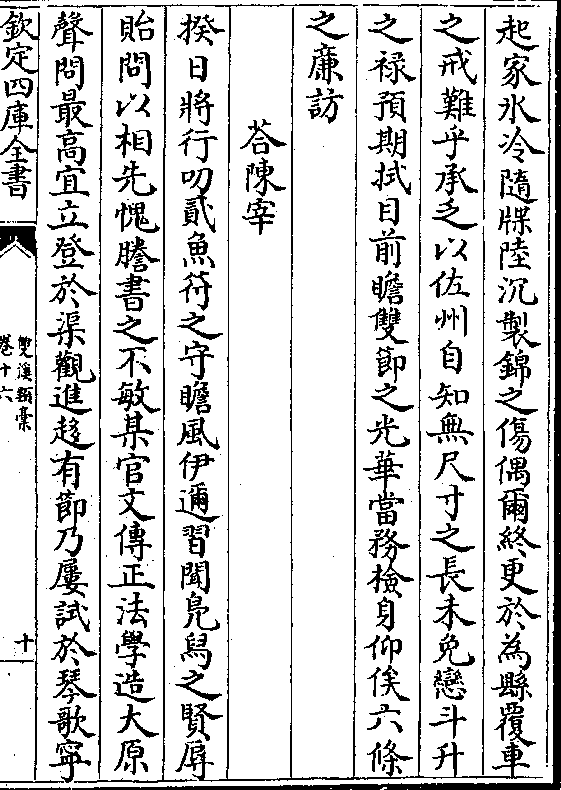 起家氷冷隨牒陸沉製錦之傷偶爾終更於為縣覆車
之戒難乎承乏以佐州自知無尺寸之長未免戀斗升
之禄預期拭目前瞻雙節之光華當務檢身仰俟六條
之亷訪
荅陳宰
揆日將行叨貳魚符之守瞻風伊邇習聞鳬舄之賢辱
貽問以相先愧謄書之不敏某官文傳正法學造大原
聲問最高宜立登於渠觀進趍有節乃屢試於琴歌寧
欽定四庫全書
雙溪類槀
卷十六
十